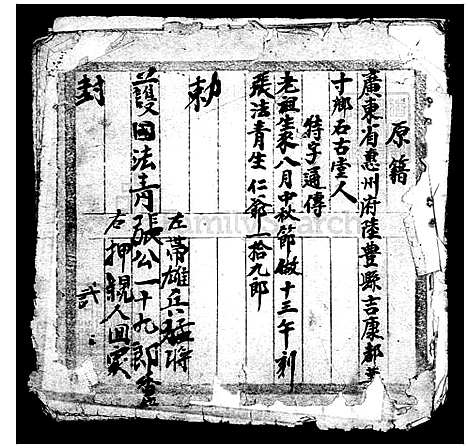 原籍
廣東省惠州府陸豐縣吉康都
寸鄉石古堂人
特字通傳
老祖生來八月中秋節做十三午刻
張法青生仁爺一拾九郎
勅
左帶雄兵猛將
護国法青張公一十九郎
右押親人回寞
封
FamilySearch